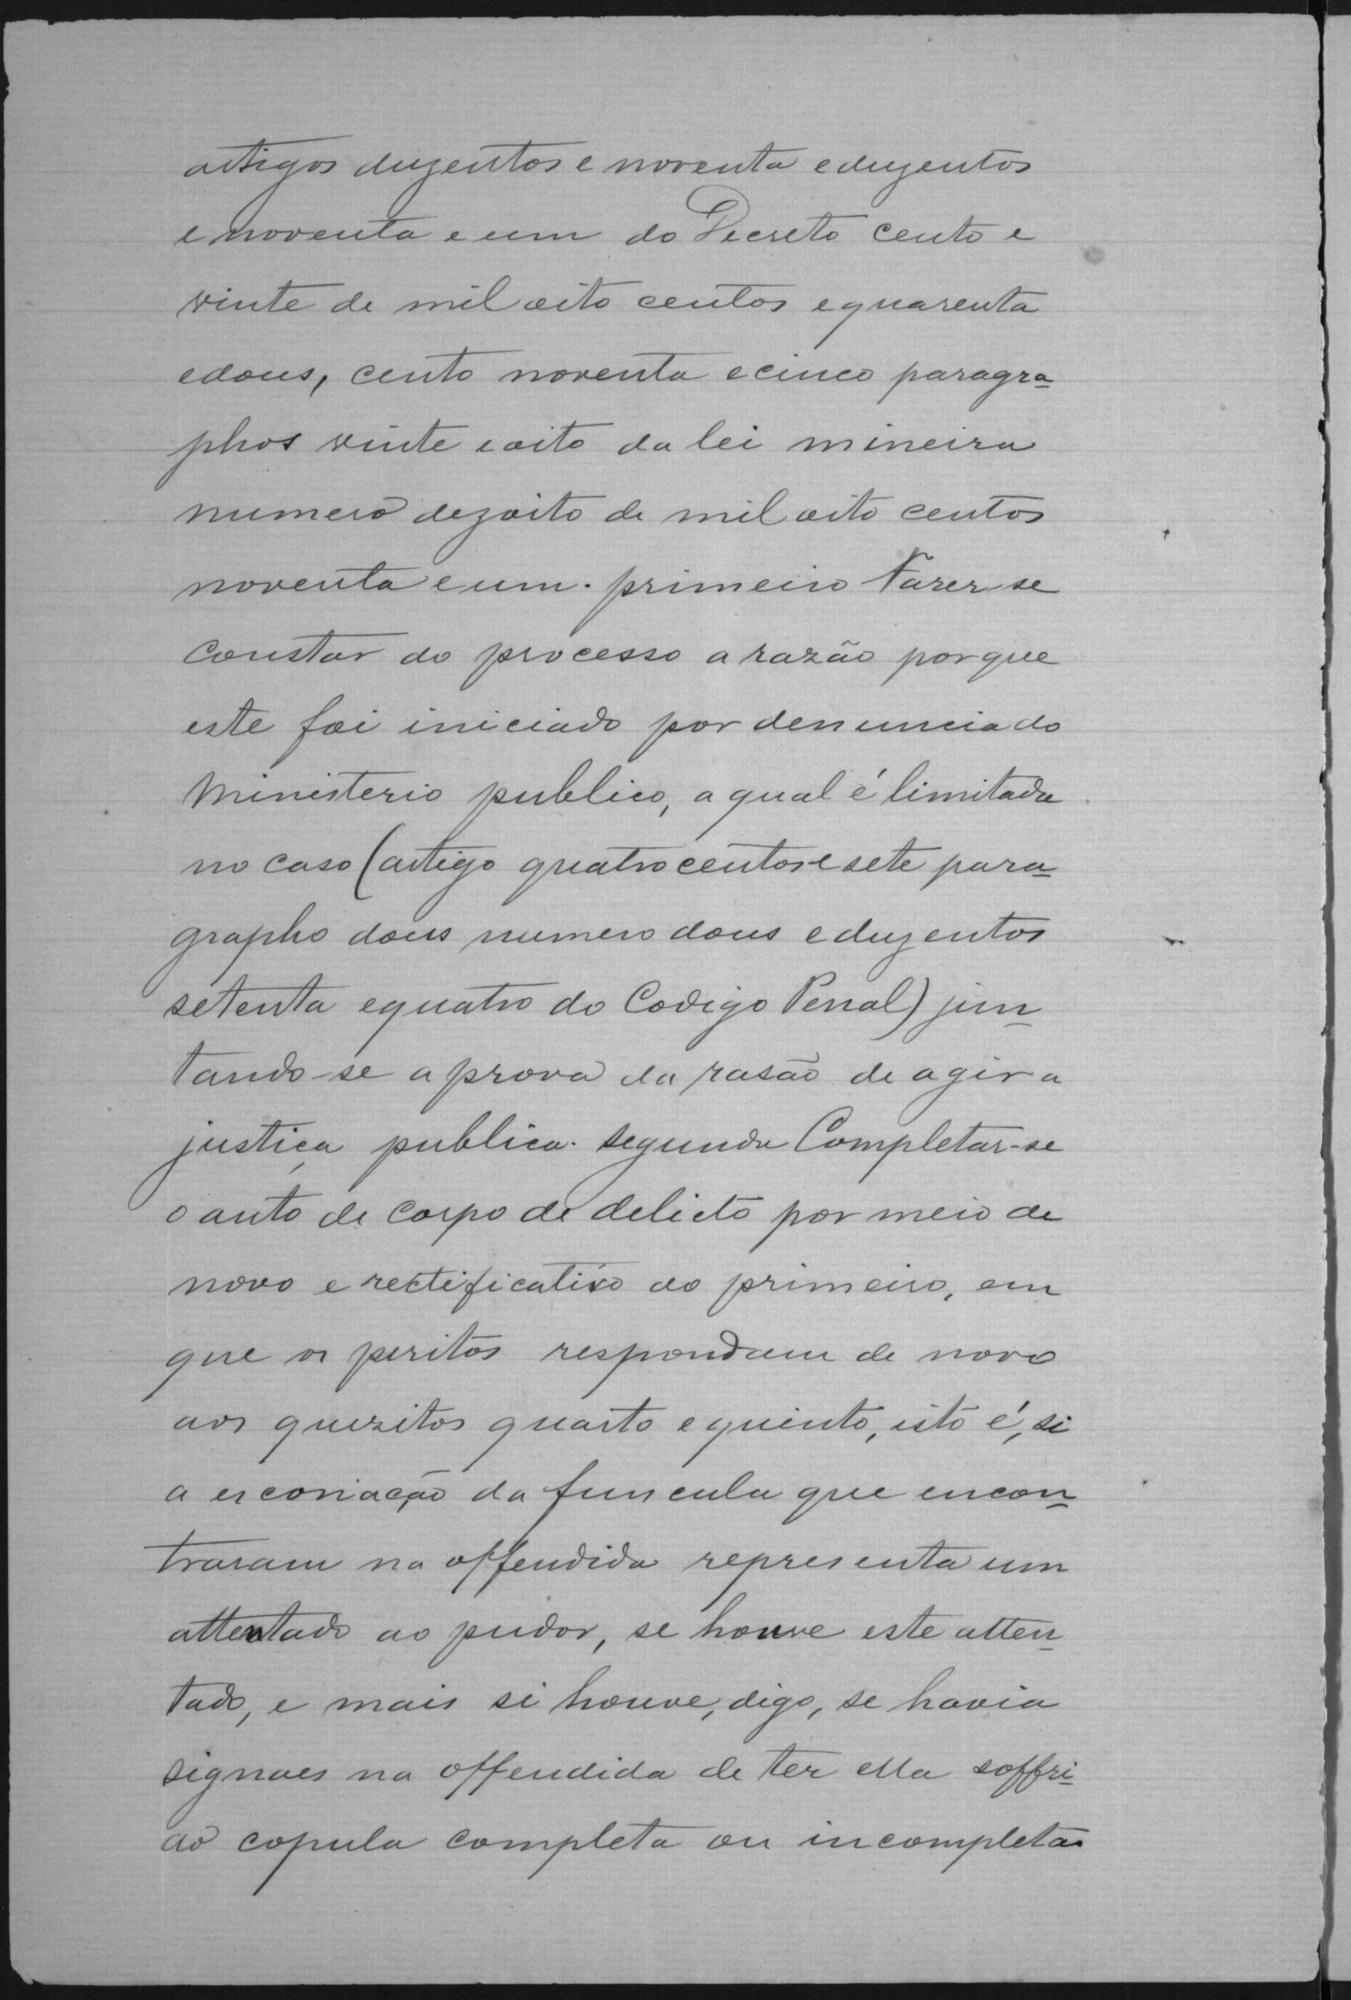 artigos duzentos e noventa e duzentos
e noventa e um do Decreto cento e
vinte de mil oito centos e quarenta
e dous, cento noventa e cinco paragra-
phos vinte e oito da lei mineira
numero dezoito de mil oito centos
noventa e um. primeiro Fazer-se
constar do processo a razão porque
este foi iniciado por denuncia do
Ministerio publico, a qual é limitada
no caso (artigo quatro centos e sete para-
grapho dous numero dous e duzentos
setenta e quatro do Codigo Penal) jun-
tando-se a prova da rasão de agir a
justiça publica. segundo Completar-se
o auto de corpo de delicto por meio de
novo e rectificativo do primeiro, em
que os peritos respondam de novo
aos quezitos quarto e quinto, isto é, si
a escoriação da funcula que encon-
traram na offendida representa um
attentado ao pudor, se houve este atten-
tado, e mais si houve, digo, se havia
signaes na offendida de ter ella soffri-
do copula completa ou incompleta